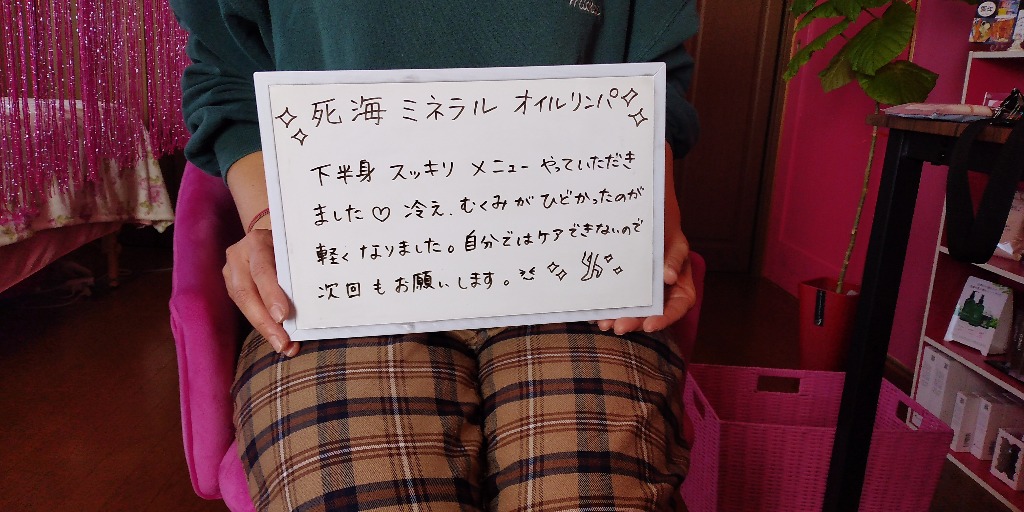 死海 ミネラル オイルリンパ
下半身 スッキリ メニュー やっていただき
ました♡ 冷え、むくみがひどかったのが
軽くなりました。自分ではケアできないので
次回もお願いします。